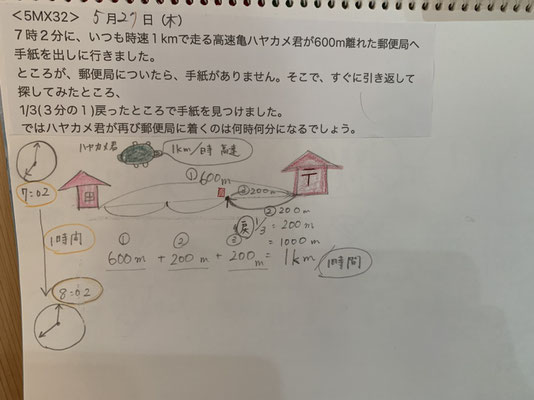 <5MX32> 5月27日(木)
7時2分に、いつも時速1kmで走る高速亀ハヤカメ君が600m離れた郵便局へ
手紙を出しに行きました。
ところが、郵便局についたら、手紙がありません。そこで、すぐに引き返して
探してみたところ、
1/3(3分の1)戻ったところで手紙を見つけました。
ではハヤカメ君が再び郵便局に着くのは何時何分になるでしょう。
ハヤカメ君
1km/時 高速
①600m
③200m
〒
田
7:02
②200m
戻 1/3 = 200m
= 1000m
1時間
① ② ③
600m + 200m + 200m = 1km/1時間
8:02